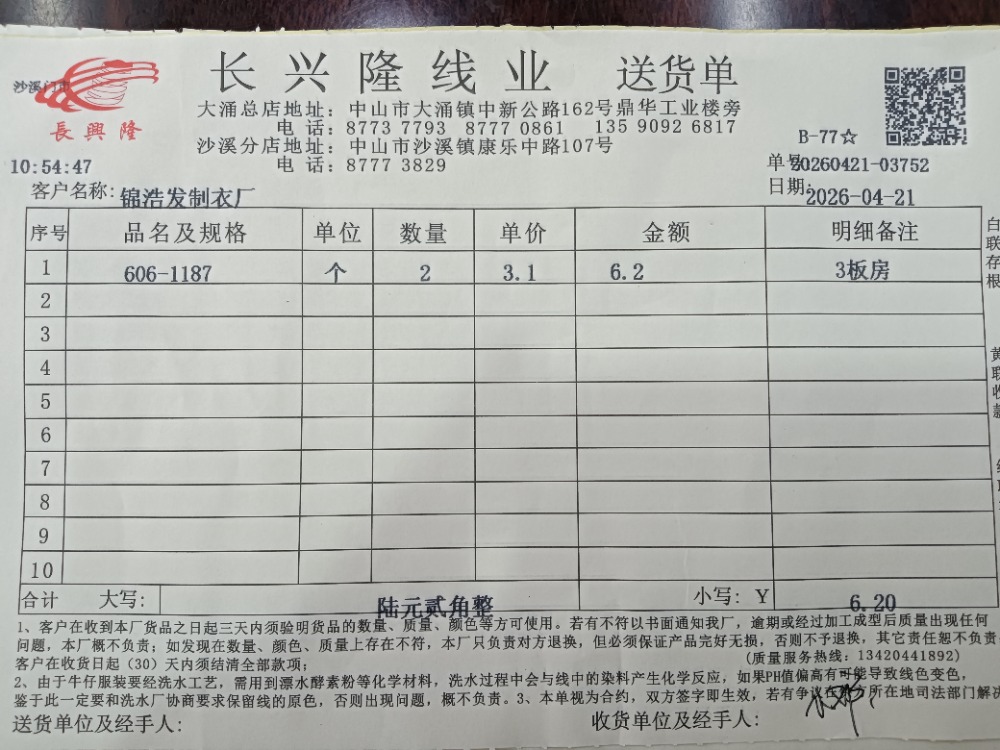 沙溪门市
長興隆
长兴隆线业 送货单
大涌总店地址：中山市大涌镇中新公路162号鼎华工业楼旁
电话：8773 7793 8777 0861 135 9092 6817
沙溪分店地址：中山市沙溪镇康乐中路107号
电话：8777 3829
B-77☆
10:54:47
单号20260421-03752
客户名称：锦浩发制衣厂
日期：2026-04-21
序号 品名及规格 单位 数量 单价 金额 明细备注
1 606-1187 个 2 3.1 6.2 3板房
2
3
4
5
6
7
8
9
10
合计 大写：陆元贰角整 小写：Y 6.20
1、客户在收到本厂货品之日起三天内须验明货品的数量、质量、颜色等方可使用。若有不符以书面通知我厂，逾期或经过加工成型后质量出现任何
问题，本厂概不负责；如发现在数量、颜色、质量上存在不符，本厂只负责对方退换，但必须保证产品完好无损，否则不予退换，其它责任恕不负责
客户在收货日起（30）天内须结清全部款项；
(质量服务热线：13420441892)
2、由于牛仔服装要经洗水工艺，需用到漂水酵素粉等化学材料，洗水过程中会与线中的染料产生化学反应，如果PH值偏高有可能导致线色变色，
鉴于此一定要和洗水厂协商要求保留线的原色，否则出现问题，概不负责。3、本单视为合约，双方签字即生效，若有争议在 方所在地司法部门解决
送货单位及经手人：
收货单位及经手人：
白联存根
黄联收款